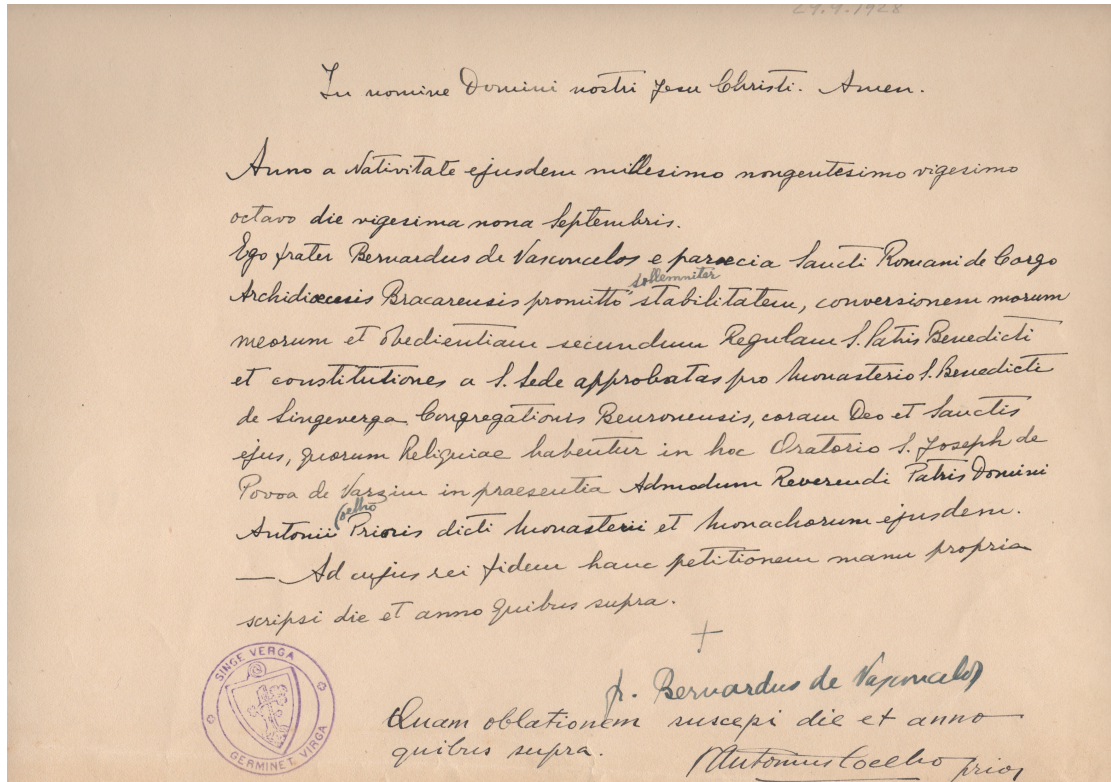 29.9.1928
In nomine Domini nostri Jesu Christi. Amen.
Anno a Nativitate ejusdem millesimo nongentesimo vigesimo
octavo die vigesima nona Septembris.
Ego frater Bernardus de Vasconcelos e paroecia Sancti Romani de Corgo
sollemniter
Archidioecesis Bracarensis promitto stabilitatem, conversionem morum
meorum et obedientiam secundum Regulam S. Patris Benedicti
et constitutiones a S. Sede approbatas pro Monasterio S. Benedicti
de Singeverga Congregationis Beuronensis, coram Deo et Sanctis
ejus, quorum Reliquiae habentur in hoc Oratorio S. Joseph de
Povoa de Varzim in praesentia Admodum Reverendi Patris Domini
Coelho
Antonii Prioris dicti Monasterii et Monachorum ejusdem.
— Ad cujus rei fidem hanc petitionem manu propria
scripsi die et anno quibus supra.
+
fr. Bernardus de Vasconcelos
Quam oblationem suscepi die et anno
quibus supra.
Antonius Coelho prior
SINGE VERGA
GERMINET VIRGA